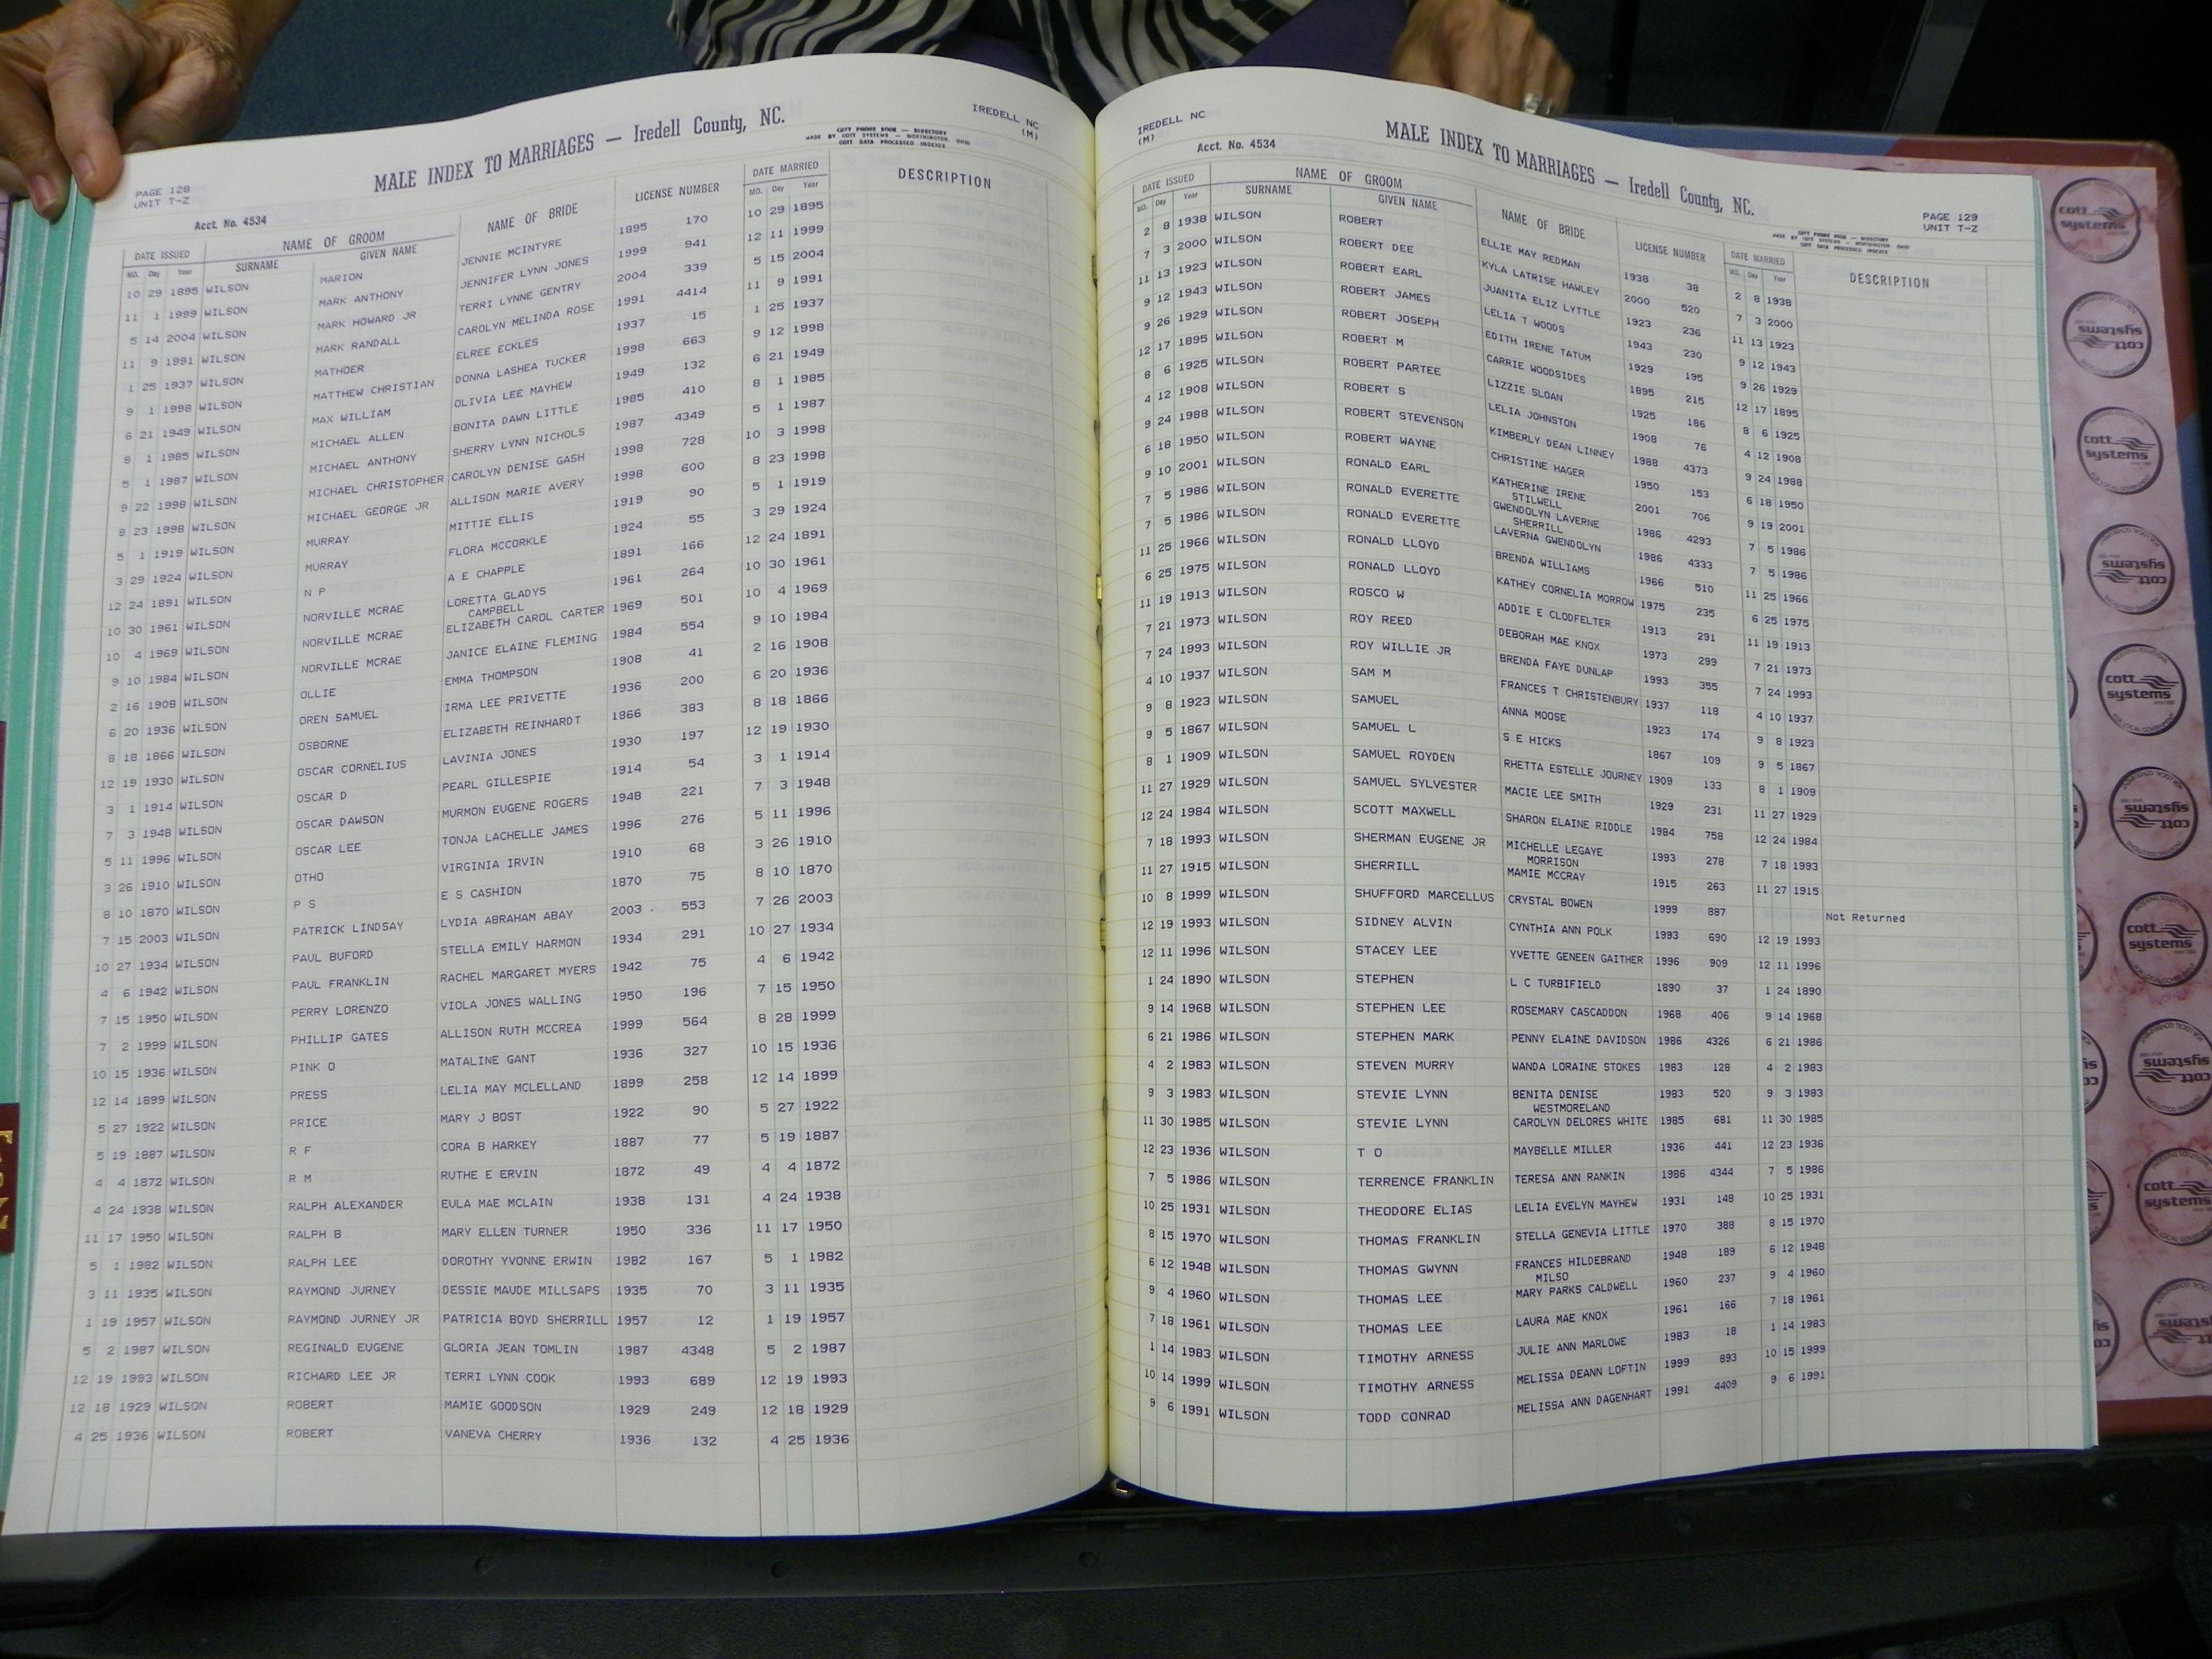 PAGE 128
UNIT T-Z
MALE INDEX TO MARRIAGES — Iredell County, NC.
COTT PHONE BOOK — DIRECTORY
MADE BY COTT SYSTEMS — WORTHINGTON OHIO
COTT DATA PROCESSED INDEXES
IREDELL NC
(M)
Acct. No. 4534
DATE ISSUED NAME OF GROOM NAME OF BRIDE LICENSE NUMBER DATE MARRIED DESCRIPTION
MO. Day Year SURNAME GIVEN NAME MO. Day Year
10 29 1895 WILSON MARION JENNIE MCINTYRE 1895 170 10 29 1895
11 1 1999 WILSON MARK ANTHONY JENNIFER LYNN JONES 1999 941 12 11 1999
5 14 2004 WILSON MARK HOWARD JR TERRI LYNNE GENTRY 2004 339 5 15 2004
11 9 1991 WILSON MARK RANDALL CAROLYN MELINDA ROSE 1991 4414 11 9 1991
1 25 1937 WILSON MATHOER ELREE ECKLES 1937 15 1 25 1937
9 1 1998 WILSON MATTHEW CHRISTIAN DONNA LASHEA TUCKER 1998 663 9 12 1998
6 21 1949 WILSON MAX WILLIAM OLIVIA LEE MAYHEW 1949 132 6 21 1949
8 1 1985 WILSON MICHAEL ALLEN BONITA DAWN LITTLE 1985 410 8 1 1985
5 1 1987 WILSON MICHAEL ANTHONY SHERRY LYNN NICHOLS 1987 4349 5 1 1987
9 22 1998 WILSON MICHAEL CHRISTOPHER CAROLYN DENISE GASH 1998 728 10 3 1998
8 23 1998 WILSON MICHAEL GEORGE JR ALLISON MARIE AVERY 1998 600 8 23 1998
5 1 1919 WILSON MURRAY MITTIE ELLIS 1919 90 5 1 1919
3 29 1924 WILSON MURRAY FLORA MCCORKLE 1924 55 3 29 1924
12 24 1891 WILSON N P A E CHAPPLE 1891 166 12 24 1891
10 30 1961 WILSON NORVILLE MCRAE LORETTA GLADYS 1961 264 10 30 1961
CAMPBELL
10 4 1969 WILSON NORVILLE MCRAE ELIZABETH CAROL CARTER 1969 501 10 4 1969
9 10 1984 WILSON NORVILLE MCRAE JANICE ELAINE FLEMING 1984 554 9 10 1984
2 16 1908 WILSON OLLIE EMMA THOMPSON 1908 41 2 16 1908
6 20 1936 WILSON OREN SAMUEL IRMA LEE PRIVETTE 1936 200 6 20 1936
8 18 1866 WILSON OSBORNE ELIZABETH REINHARDT 1866 383 8 18 1866
12 19 1930 WILSON OSCAR CORNELIUS LAVINIA JONES 1930 197 12 19 1930
3 1 1914 WILSON OSCAR D PEARL GILLESPIE 1914 54 3 1 1914
7 3 1948 WILSON OSCAR DAWSON MURMON EUGENE ROGERS 1948 221 7 3 1948
5 11 1996 WILSON OSCAR LEE TONJA LACHELLE JAMES 1996 276 5 11 1996
3 26 1910 WILSON OTHO VIRGINIA IRVIN 1910 68 3 26 1910
8 10 1870 WILSON P S E S CASHION 1870 75 8 10 1870
7 15 2003 WILSON PATRICK LINDSAY LYDIA ABRAHAM ABAY 2003 553 7 26 2003
10 27 1934 WILSON PAUL BUFORD STELLA EMILY HARMON 1934 291 10 27 1934
4 6 1942 WILSON PAUL FRANKLIN RACHEL MARGARET MYERS 1942 75 4 6 1942
7 15 1950 WILSON PERRY LORENZO VIOLA JONES WALLING 1950 196 7 15 1950
7 2 1999 WILSON PHILLIP GATES ALLISON RUTH MCCREA 1999 564 8 28 1999
10 15 1936 WILSON PINK O MATALINE GANT 1936 327 10 15 1936
12 14 1899 WILSON PRESS LELIA MAY MCLELLAND 1899 258 12 14 1899
5 27 1922 WILSON PRICE MARY J BOST 1922 90 5 27 1922
5 19 1887 WILSON R F CORA B HARKEY 1887 77 5 19 1887
4 4 1872 WILSON R M RUTHE E ERVIN 1872 49 4 4 1872
4 24 1938 WILSON RALPH ALEXANDER EULA MAE MCLAIN 1938 131 4 24 1938
11 17 1950 WILSON RALPH B MARY ELLEN TURNER 1950 336 11 17 1950
5 1 1982 WILSON RALPH LEE DOROTHY YVONNE ERWIN 1982 167 5 1 1982
3 11 1935 WILSON RAYMOND JURNEY DESSIE MAUDE MILLSAPS 1935 70 3 11 1935
1 19 1957 WILSON RAYMOND JURNEY JR PATRICIA BOYD SHERRILL 1957 12 1 19 1957
5 2 1987 WILSON REGINALD EUGENE GLORIA JEAN TOMLIN 1987 4348 5 2 1987
12 19 1993 WILSON RICHARD LEE JR TERRI LYNN COOK 1993 689 12 19 1993
12 18 1929 WILSON ROBERT MAMIE GOODSON 1929 249 12 18 1929
4 25 1936 WILSON ROBERT VANEVA CHERRY 1936 132 4 25 1936
IREDELL NC
(M)
Acct. No. 4534
MALE INDEX TO MARRIAGES — Iredell County, NC.
PAGE 129
UNIT T-Z
DATE ISSUED NAME OF GROOM NAME OF BRIDE LICENSE NUMBER DATE MARRIED DESCRIPTION
MO. Day Year SURNAME GIVEN NAME MO. Day Year
2 8 1938 WILSON ROBERT ELLIE MAY REDMAN 1938 38 2 8 1938
7 3 2000 WILSON ROBERT DEE KYLA LATRISE HAWLEY 2000 520 7 3 2000
11 13 1923 WILSON ROBERT EARL JUANITA ELIZ LYTTLE 1923 236 11 13 1923
9 12 1943 WILSON ROBERT JAMES LELIA T WOODS 1943 230 9 12 1943
9 26 1929 WILSON ROBERT JOSEPH EDITH IRENE TATUM 1929 195 9 26 1929
12 17 1895 WILSON ROBERT M CARRIE WOODSIDES 1895 215 12 17 1895
8 6 1925 WILSON ROBERT PARTEE LIZZIE SLOAN 1925 186 8 6 1925
4 12 1908 WILSON ROBERT S LELIA JOHNSTON 1908 76 4 12 1908
9 24 1988 WILSON ROBERT STEVENSON KIMBERLY DEAN LINNEY 1988 4373 9 24 1988
6 18 1950 WILSON ROBERT WAYNE CHRISTINE HAGER 1950 153 6 18 1950
9 10 2001 WILSON RONALD EARL KATHERINE IRENE 2001 706 9 19 2001
STILWELL
7 5 1986 WILSON RONALD EVERETTE GWENDOLYN LAVERNE 1986 4293 7 5 1986
SHERRILL
7 5 1986 WILSON RONALD EVERETTE LAVERNA GWENDOLYN 1986 4333 7 5 1986
11 25 1966 WILSON RONALD LLOYD BRENDA WILLIAMS 1966 510 11 25 1966
6 25 1975 WILSON RONALD LLOYD KATHEY CORNELIA MORROW 1975 235 6 25 1975
11 19 1913 WILSON ROSCO W ADDIE E CLODFELTER 1913 291 11 19 1913
7 21 1973 WILSON ROY REED DEBORAH MAE KNOX 1973 299 7 21 1973
7 24 1993 WILSON ROY WILLIE JR BRENDA FAYE DUNLAP 1993 355 7 24 1993
4 10 1937 WILSON SAM M FRANCES T CHRISTENBURY 1937 118 4 10 1937
9 8 1923 WILSON SAMUEL ANNA MOOSE 1923 174 9 8 1923
9 5 1867 WILSON SAMUEL L S E HICKS 1867 109 9 5 1867
8 1 1909 WILSON SAMUEL ROYDEN RHETTA ESTELLE JOURNEY 1909 133 8 1 1909
11 27 1929 WILSON SAMUEL SYLVESTER MACIE LEE SMITH 1929 231 11 27 1929
12 24 1984 WILSON SCOTT MAXWELL SHARON ELAINE RIDDLE 1984 758 12 24 1984
7 18 1993 WILSON SHERMAN EUGENE JR MICHELLE LEGAYE 1993 278 7 18 1993
MORRISON
11 27 1915 WILSON SHERRILL MAMIE MCCRAY 1915 263 11 27 1915
10 8 1999 WILSON SHUFFORD MARCELLUS CRYSTAL BOWEN 1999 887 Not Returned
12 19 1993 WILSON SIDNEY ALVIN CYNTHIA ANN POLK 1993 690 12 19 1993
12 11 1996 WILSON STACEY LEE YVETTE GENEEN GAITHER 1996 909 12 11 1996
1 24 1890 WILSON STEPHEN L C TURBIFIELD 1890 37 1 24 1890
9 14 1968 WILSON STEPHEN LEE ROSEMARY CASCADDON 1968 406 9 14 1968
6 21 1986 WILSON STEPHEN MARK PENNY ELAINE DAVIDSON 1986 4326 6 21 1986
4 2 1983 WILSON STEVEN MURRY WANDA LORAINE STOKES 1983 128 4 2 1983
9 3 1983 WILSON STEVIE LYNN BENITA DENISE 1983 520 9 3 1983
WESTMORELAND
11 30 1985 WILSON STEVIE LYNN CAROLYN DELORES WHITE 1985 681 11 30 1985
12 23 1936 WILSON T O MAYBELLE MILLER 1936 441 12 23 1936
7 5 1986 WILSON TERRENCE FRANKLIN TERESA ANN RANKIN 1986 4344 7 5 1986
10 25 1931 WILSON THEODORE ELIAS LELIA EVELYN MAYHEW 1931 148 10 25 1931
8 15 1970 WILSON THOMAS FRANKLIN STELLA GENEVIA LITTLE 1970 388 8 15 1970
6 12 1948 WILSON THOMAS GWYNN FRANCES HILDEBRAND 1948 189 6 12 1948
MILSO
9 4 1960 WILSON THOMAS LEE MARY PARKS CALDWELL 1960 237 9 4 1960
7 18 1961 WILSON THOMAS LEE LAURA MAE KNOX 1961 166 7 18 1961
1 14 1983 WILSON TIMOTHY ARNESS JULIE ANN MARLOWE 1983 18 1 14 1983
10 14 1999 WILSON TIMOTHY ARNESS MELISSA DEANN LOFTIN 1999 893 10 15 1999
9 6 1991 WILSON TODD CONRAD MELISSA ANN DAGENHART 1991 4409 9 6 1991
cott
systems
cott
systems
cott
systems
cott
systems
cott
systems
cott
systems
cott
systems
cott
systems
cott
systems
cott
systems